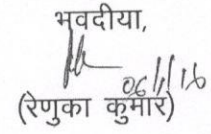 भवदीया,
06/1/16
(रेणुका कुमार)